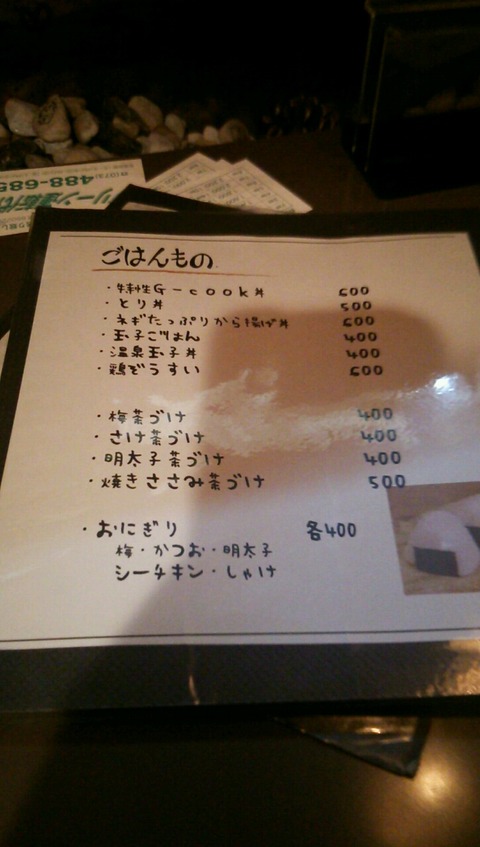 488-685
ごはんもの
・特性G-cook丼 600
・とり丼 500
・ネギたっぷりから揚げ丼 600
・玉子ごはん 400
・温泉玉子丼 400
・鶏ぞうすい 600
・梅茶づけ 400
・さけ茶づけ 400
・明太子茶づけ 400
・焼きささみ茶づけ 500
・おにぎり 各400
梅・かつお・明太子
シーチキン・しゃけ